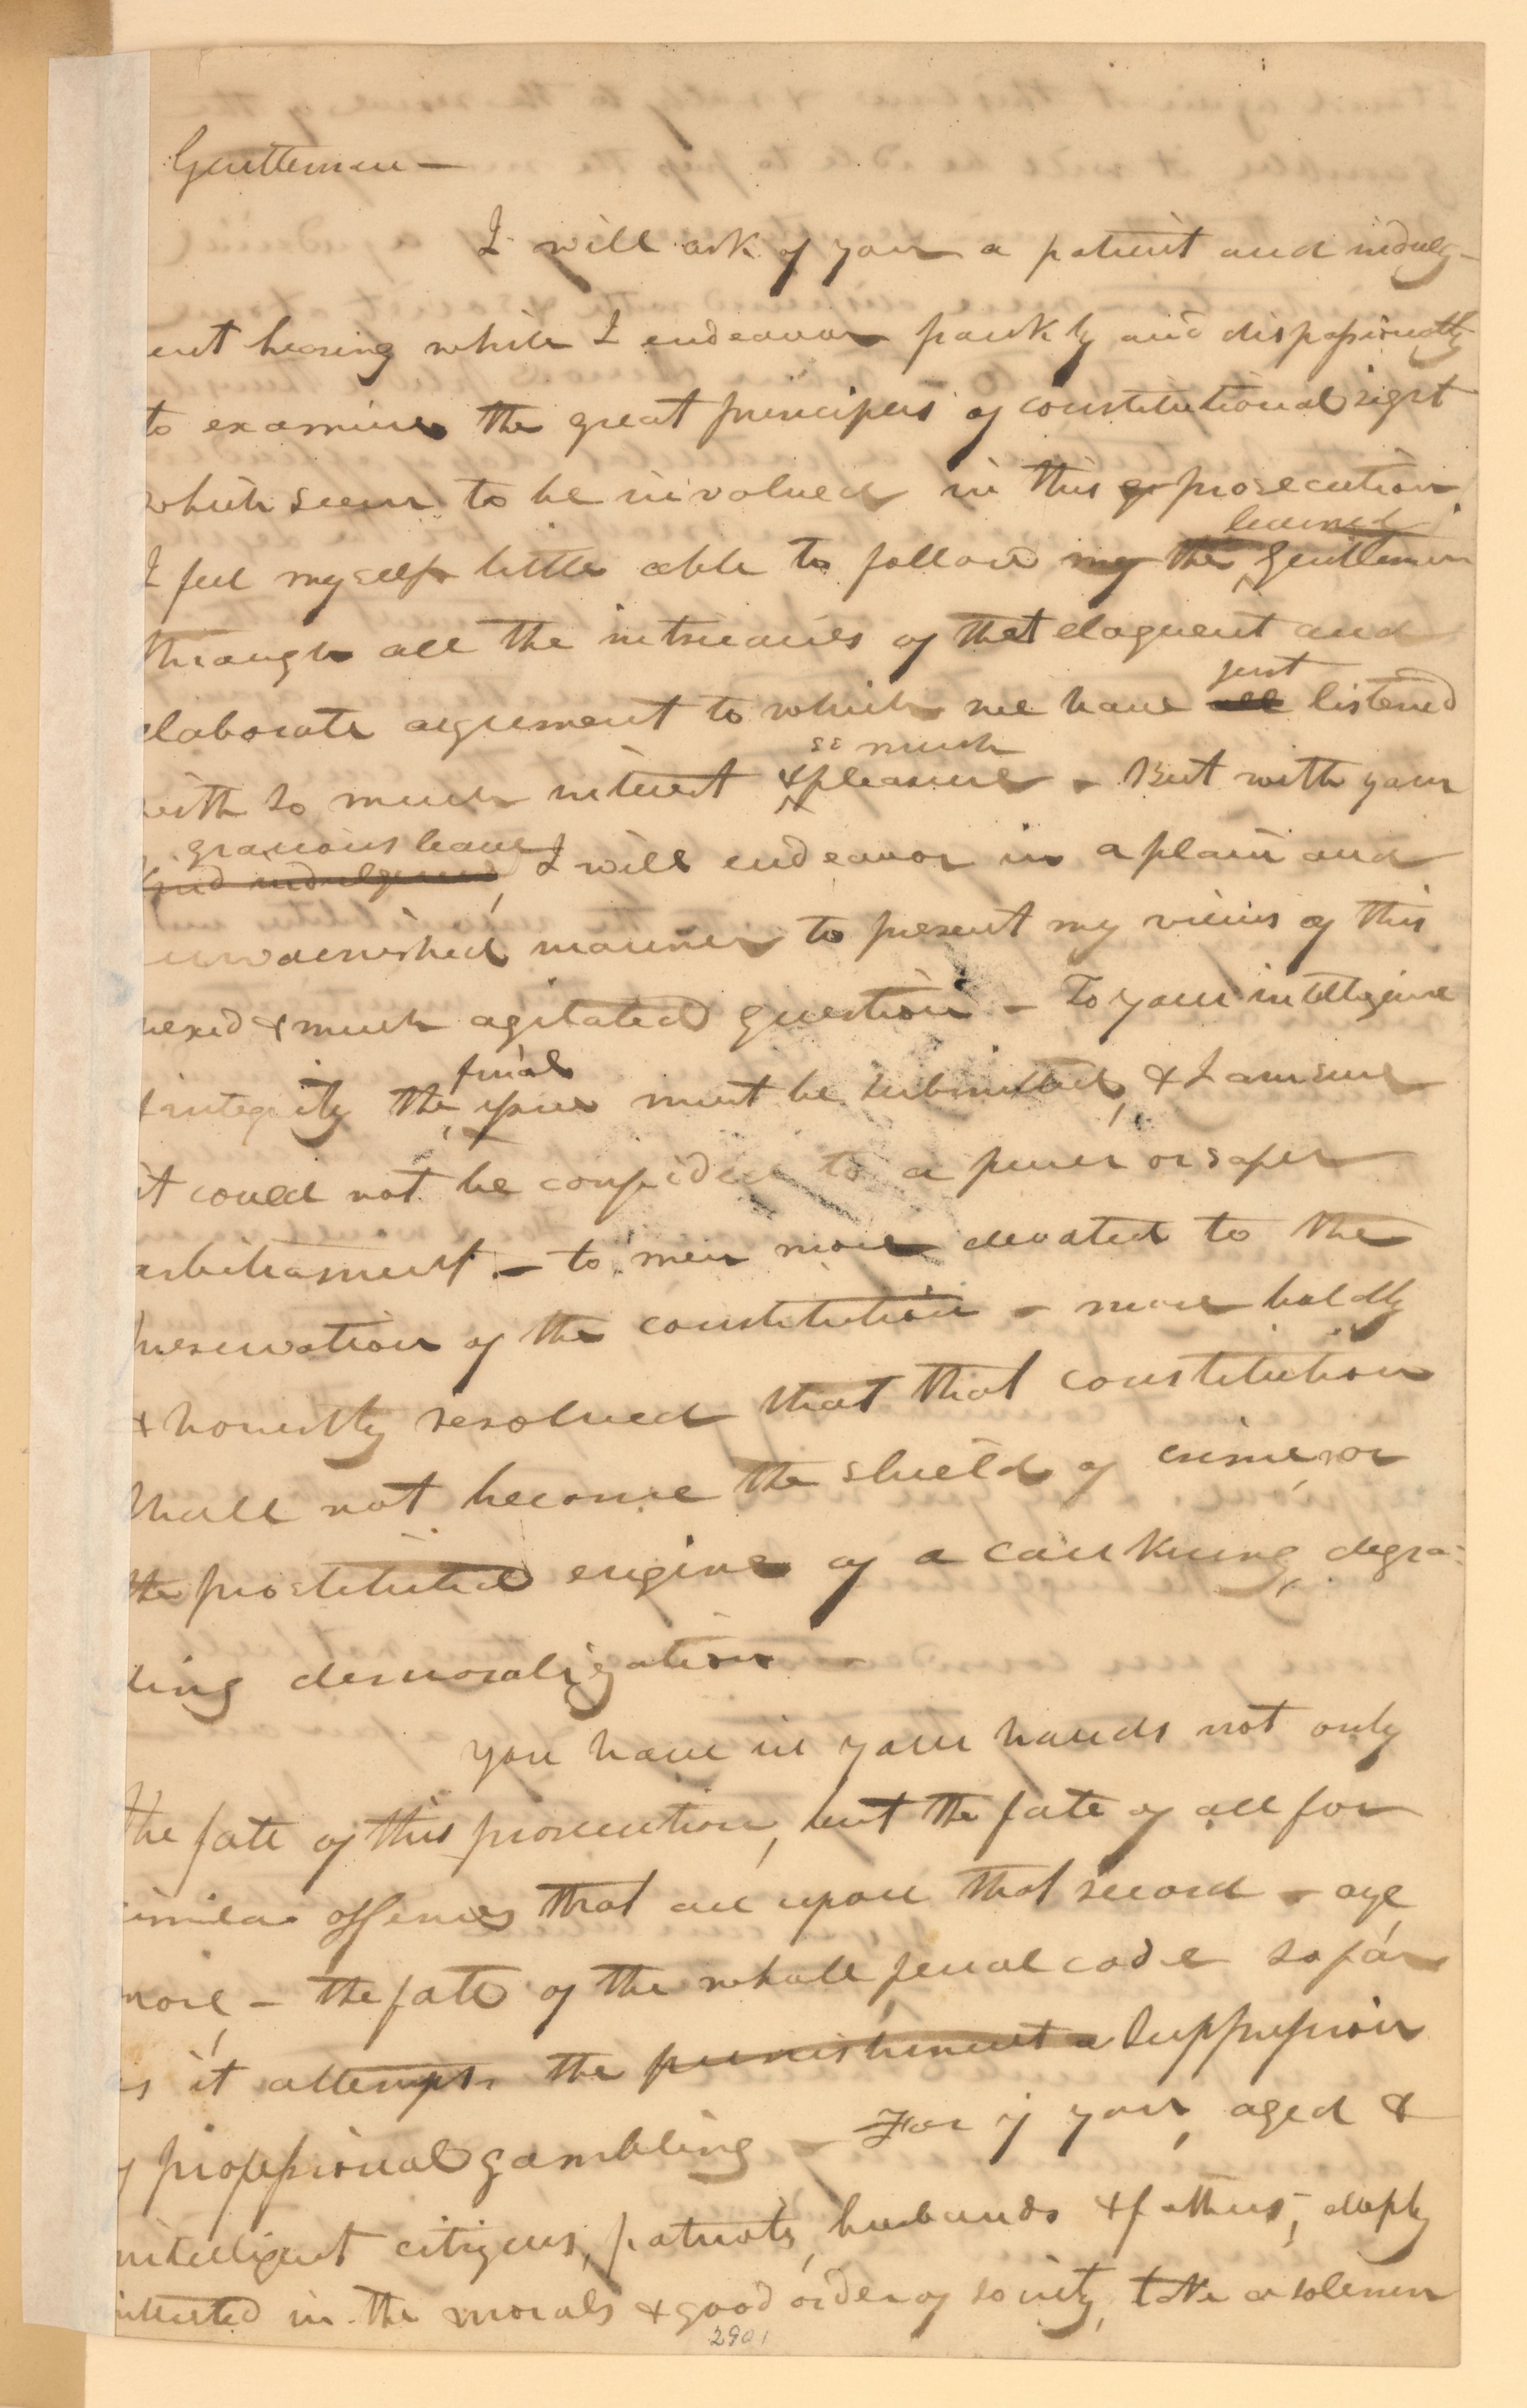 Gentlemen —
I will ask of you a patient and indulg-
ent hearing while I endeavor frankly and dispassionately
to examine the great principles of constitutional right
which seem to be involved in this prosecution.
learned
I feel myself little able to follow my the gentleman
through all the intricacies of that eloquent and
just
elaborate argument to which we have all listened
so much
with so much interest & pleasure - But with your
gracious leave
kind indulgence, I will endeavor in a plain and
unvarnished manner to present my views of this
vexed & much agitated question - To your intelligence
final
& integrity the issue must be submitted, & I am sure
it could not be confided to a purer or safer
arbitrament. - to men more devoted to the
preservation of the constitution - more boldly
& honestly resolved that that constitution
shall not become the shield of crime, or
the prostituted engine of a cankering, degra-
ding demoralization -
You have in your hands not only
the fate of this prosecution, but the fate of all for
similar offences that are upon that record - aye,
more, - the fate of the whole penal code so far
as it attempts the punishment a suppression
of professional gambling - For if you, aged &
intelligent citizens, patriots, husbands & fathers, deeply
interested in the morals & good order of society, take a solemn
2901